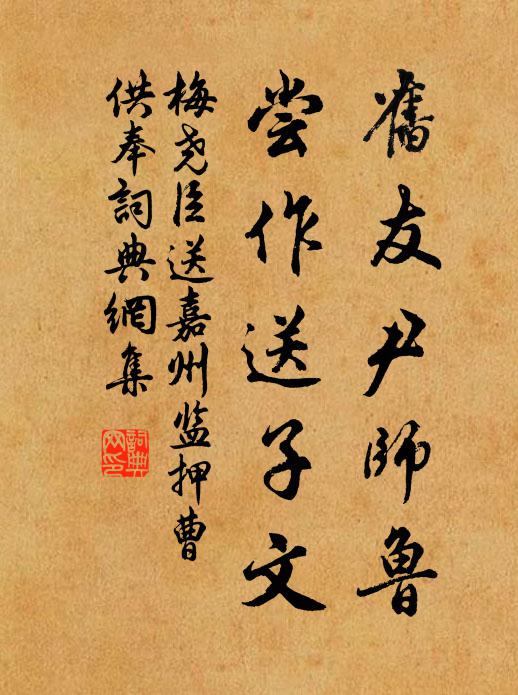 舊友尹師魯
尝作送子文
梅尧臣送嘉州监押曹
供奉詞典網集
詞典
网印